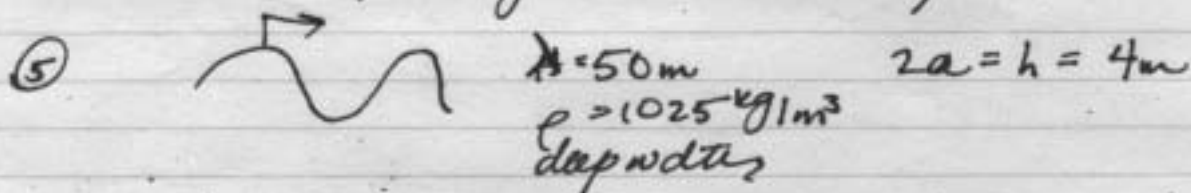 ⑤ λ = 50m 2a = h = 4m
ρ = 1025 kg/m³
deep water